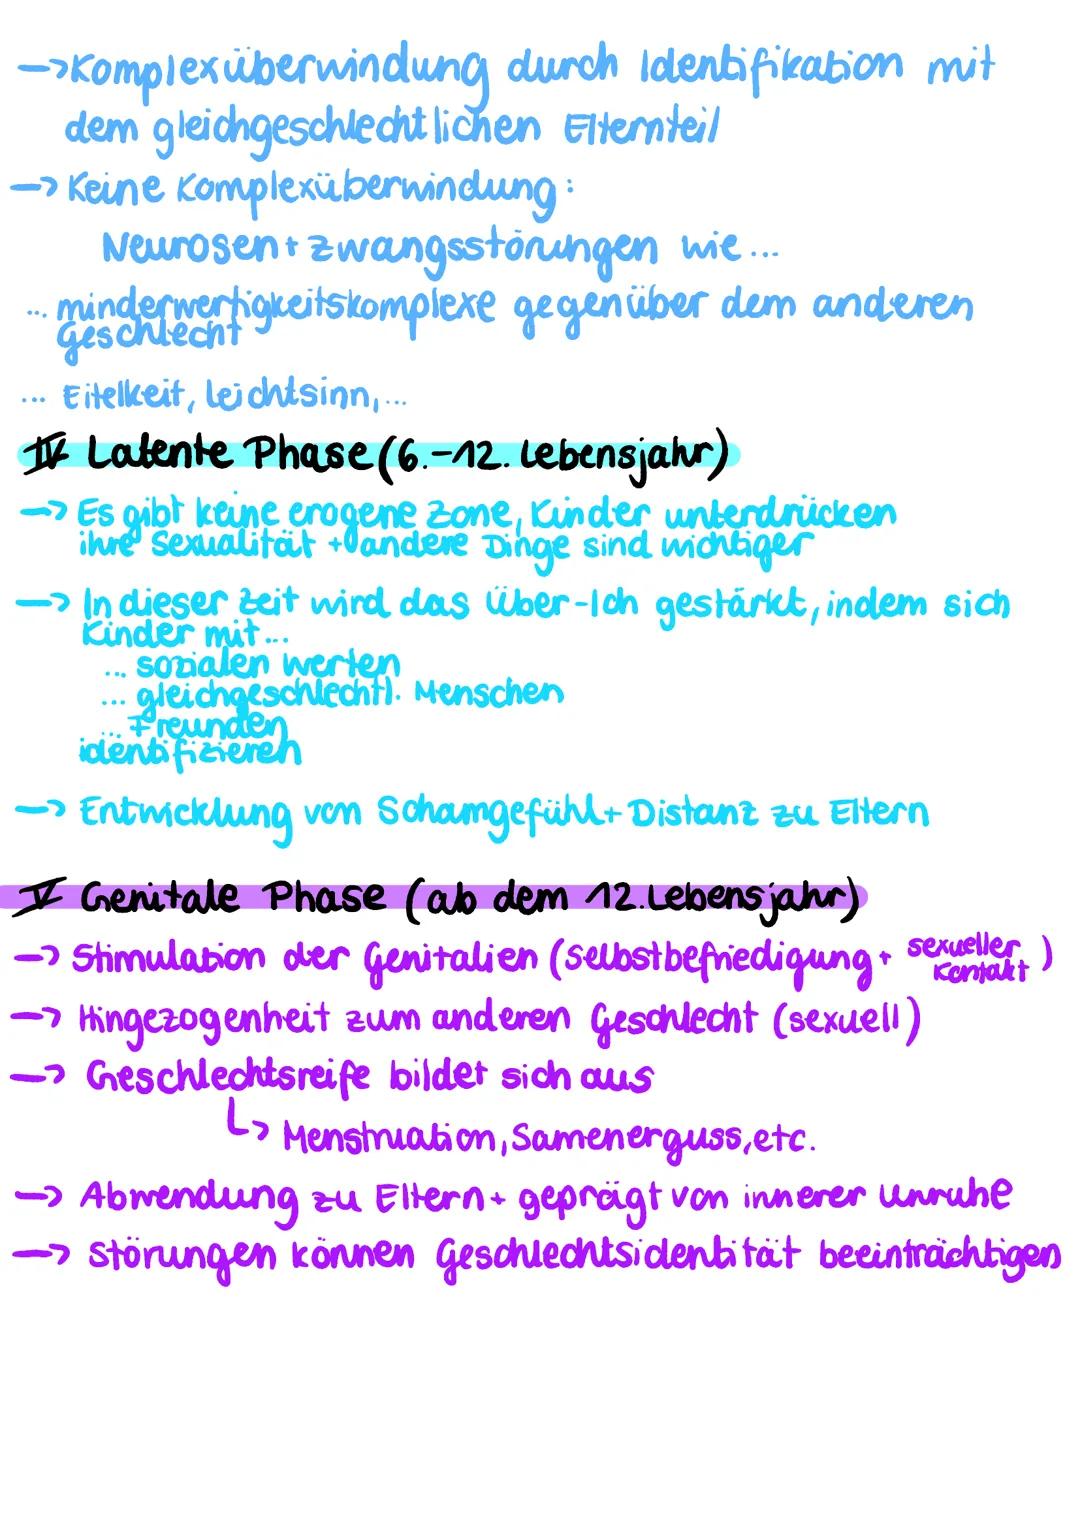 → Komplexüberwindung durch Identifikation mit
dem gleichgeschlechtlichen Elternteil
→ Keine Komplexüberwindung:
Neurosen + Zwangsstörungen wie ...
... minderwertigkeitskomplexe gegenüber dem anderen
Geschlecht
... Eitelkeit, Leichtsinn, ...
IV Latente Phase (6.-12. Lebensjahr)
→ Es gibt keine erogene Zone, Kinder unterdrücken
ihre Sexualität + andere Dinge sind wichtiger
→ In dieser Zeit wird das Über-Ich gestärkt, indem sich
Kinder mit ...
... sozialen werten
... gleichgeschlechtl. Menschen
... Freunden
identifizieren
→ Entwicklung von Schamgefühl + Distanz zu Eltern
V Genitale Phase (ab dem 12. Lebensjahr)
→ Stimulation der Genitalien (Selbstbefriedigung + sexueller Kontakt)
→ Hingezogenheit zum anderen Geschlecht (sexuell)
→ Geschlechtsreife bildet sich aus
↳ Menstruation, Samenerguss, etc.
→ Abwendung zu Eltern + geprägt von innerer Unruhe
→ Störungen können Geschlechtsidentität beeinträchtigen